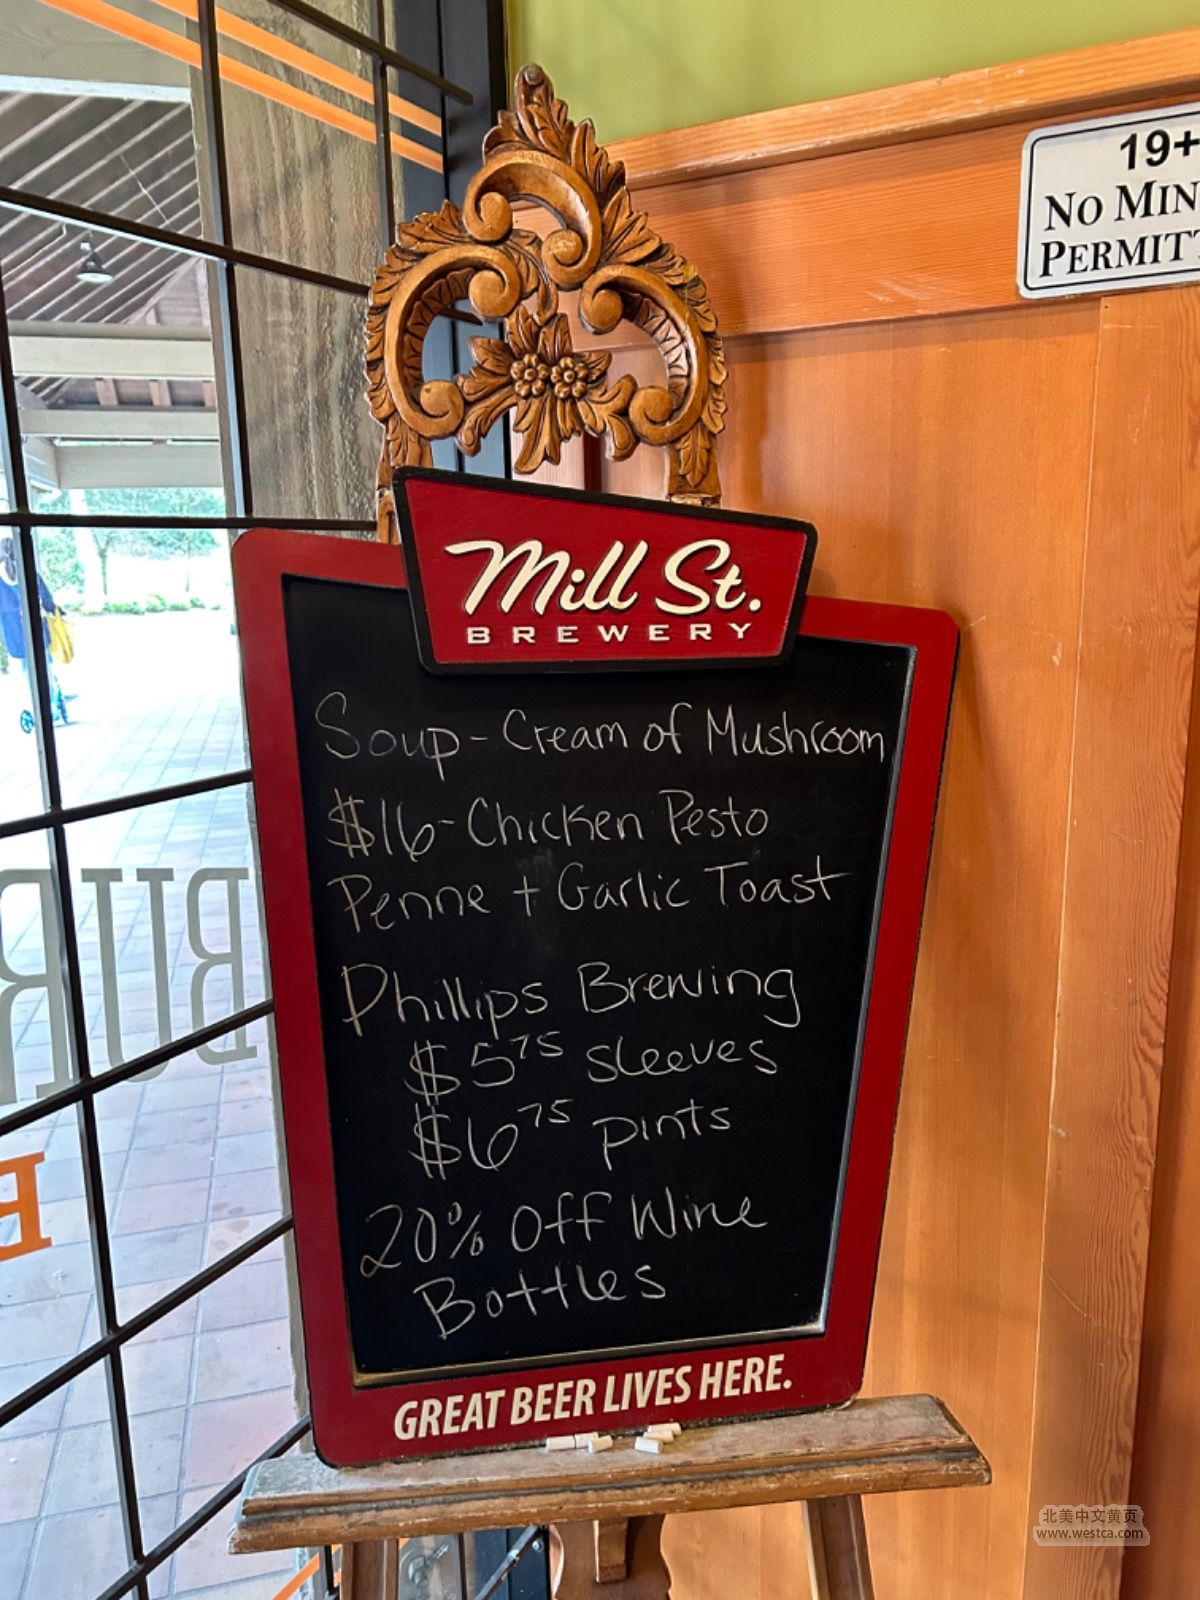 19+
NO MIN
PERMIT
Mill St.
BREWERY
Soup - Cream of Mushroom
$16 - Chicken Pesto
Penne + Garlic Toast
Phillips Brewing
$5 75 sleeves
$6 75 pints
20% Off Wine
Bottles
GREAT BEER LIVES HERE.
BUR
北美中文黄页
www.westca.com